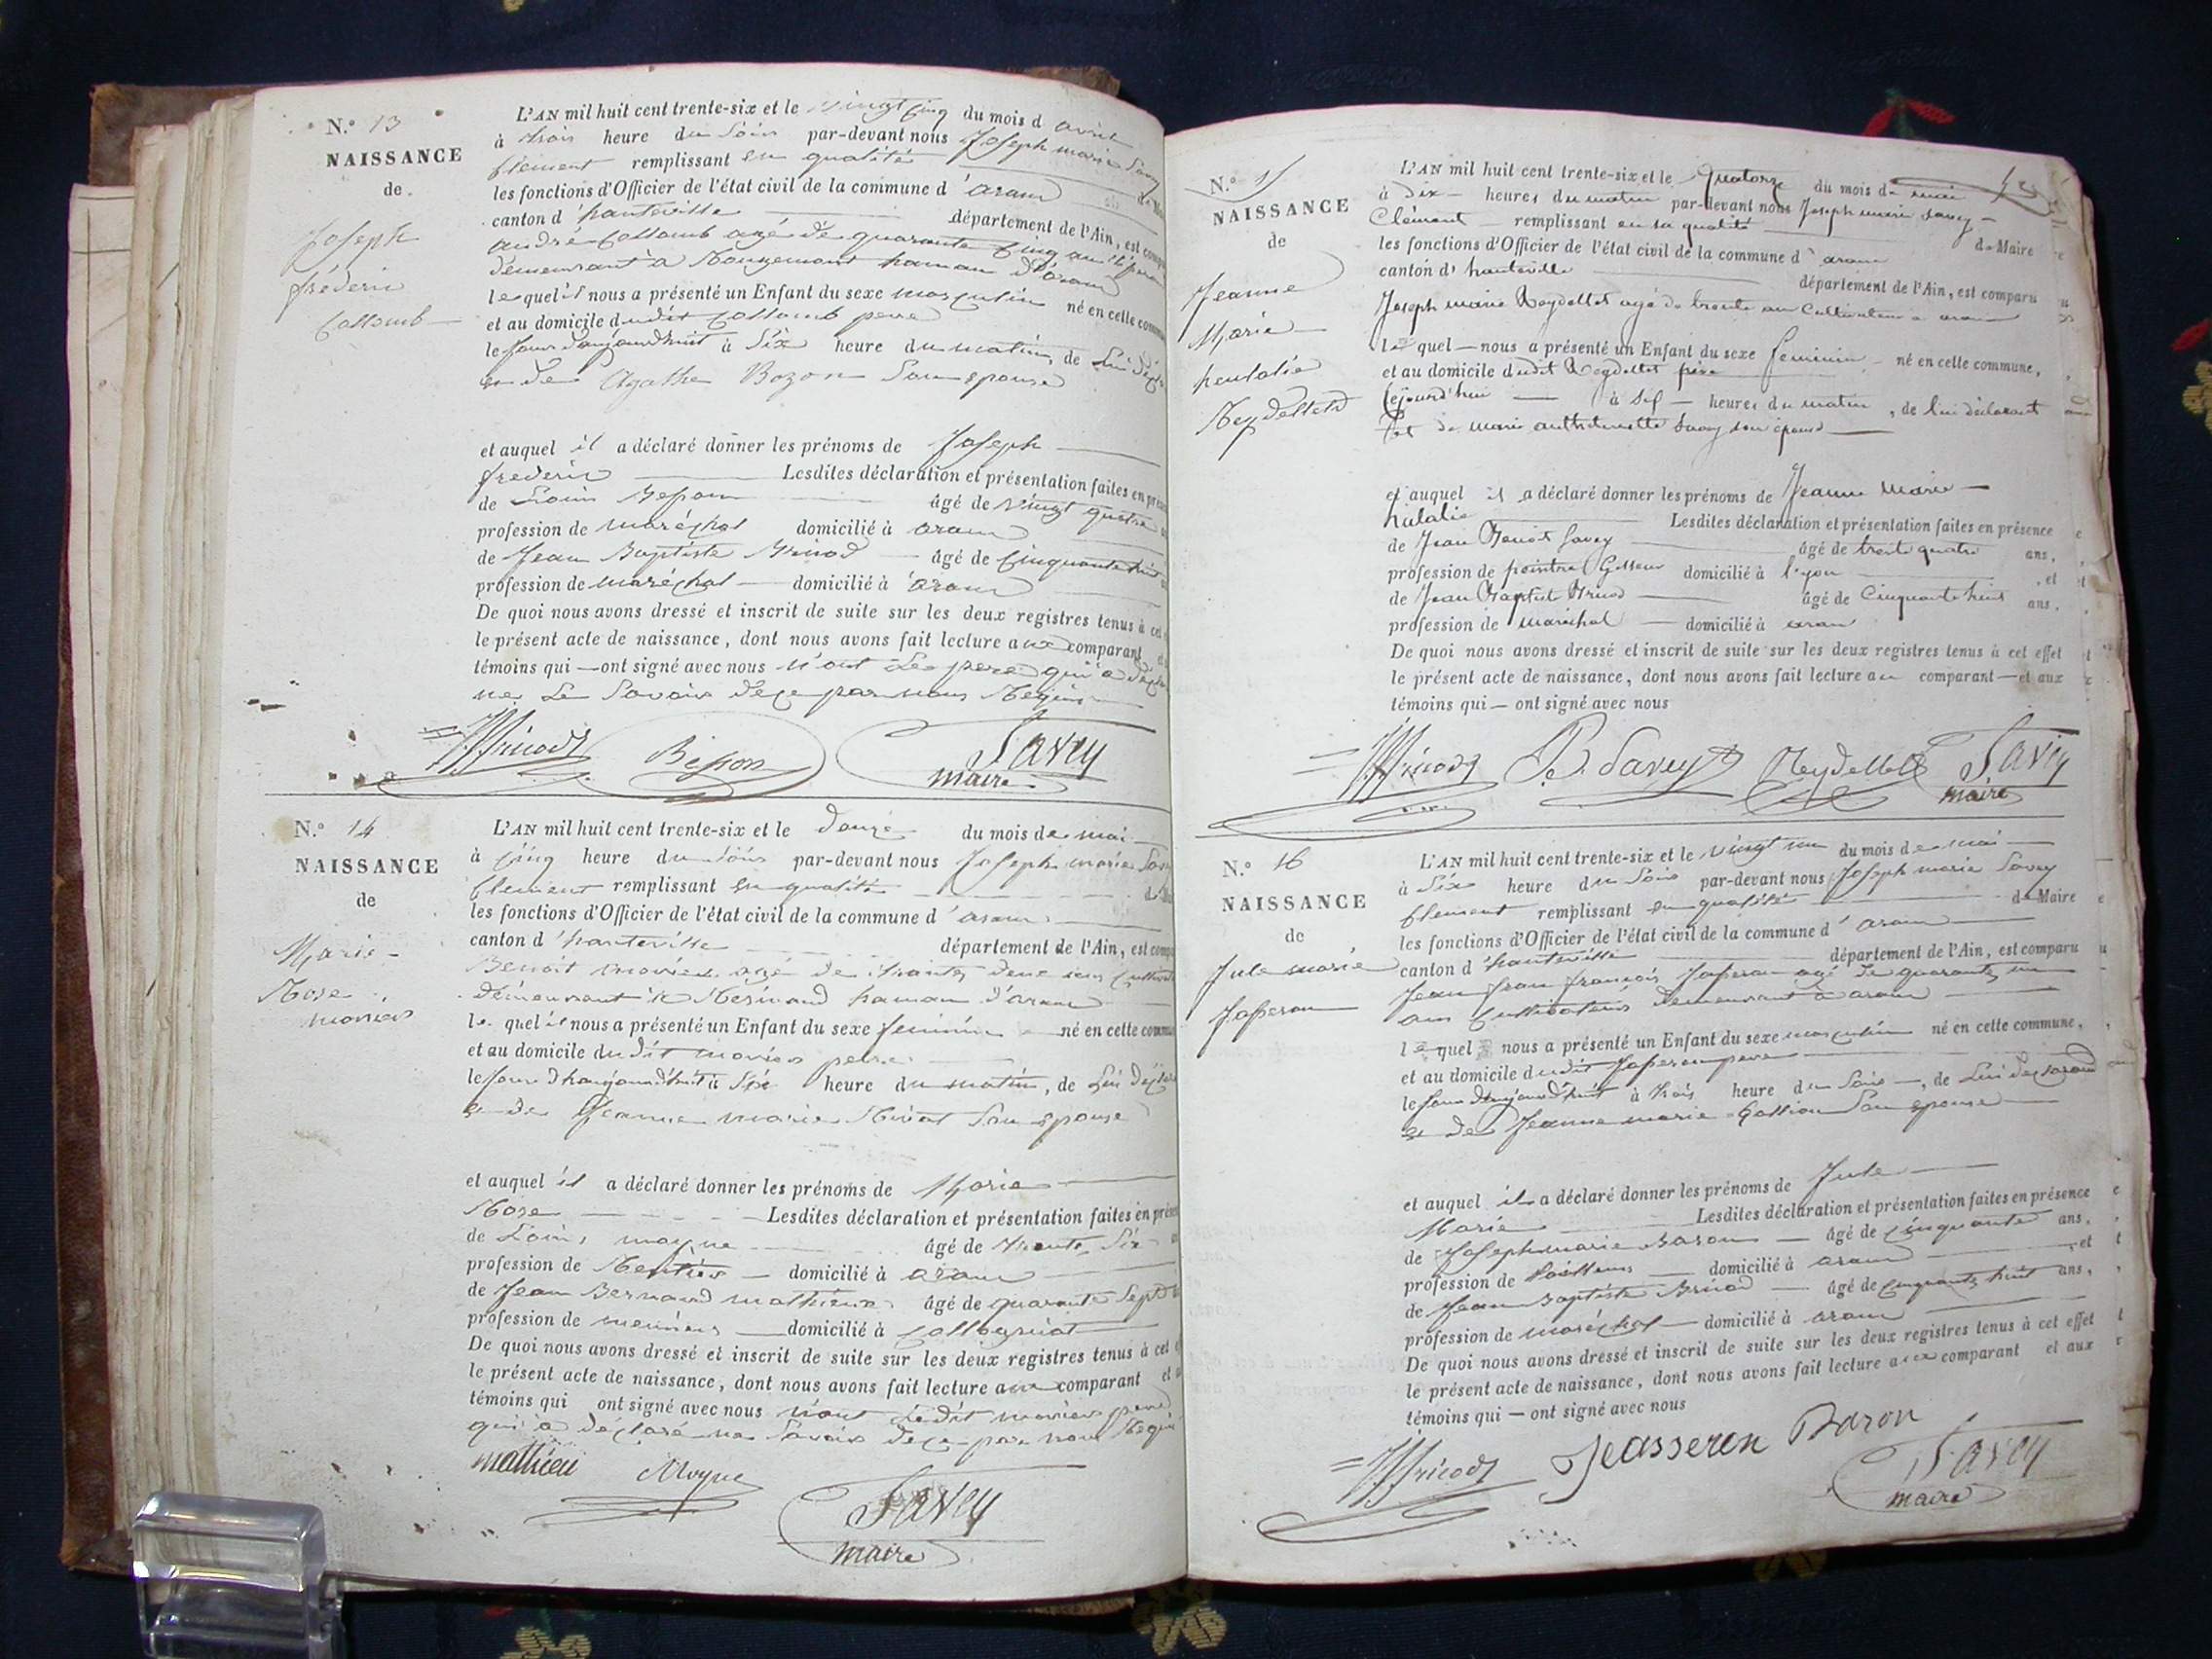 N.° 13
NAISSANCE
de
Joseph
fréderic
Collomb
L'AN mil huit cent trente-six et le vingt cinq du mois d avril
à trois heure du soir par-devant nous Joseph marie Savey
Clement remplissant en qualité
les fonctions d'Officier de l'état civil de la commune d'aranc
canton d'hauteville département de l'Ain, est comp
andré Collomb agé de quarante cinq ans
demeurant à Rougemont hamau d'aranc
lequel il nous a présenté un Enfant du sexe masculin né en cette commu
et au domicile dudit Collomb pere
le Jour d'aujourd'huit à Six heure du matin, de Lui
et de Agathe Bozon Son epouse
et auquel il a déclaré donner les prénoms de Joseph
frederic Lesdites déclaration et présentation faites en pre
de Louis Besson âgé de vingt quatre
profession de maréchal domicilié à aranc
de Jean Baptiste Brinod âgé de Cinquante huit
profession de maréchal domicilié à aranc
De quoi nous avons dressé et inscrit de suite sur les deux registres tenus à cet
le présent acte de naissance, dont nous avons fait lecture aux comparant et
témoins qui ont signé avec nous n'ont Le pere qui a
ne Le Savoir de ce par nous Requis
Brinod Besson Savey
maire
N.° 14
NAISSANCE
de
Marie
Rose
L'AN mil huit cent trente-six et le douze du mois de mai
à cinq heure du soir par-devant nous Joseph marie Sav
Clement remplissant en qualité
les fonctions d'Officier de l'état civil de la commune d'aranc
canton d'hauteville département de l'Ain, est comp
Benoit agé de trante deux ans
demeurant à hamau d'aranc
le quel il nous a présenté un Enfant du sexe feminin né en cette commu
et au domicile dudit pere
le Jour d'haujourd'huit à Six heure du matin, de Lui
et de Jeanne marie Son epouse
et auquel il a déclaré donner les prénoms de Marie
Rose Lesdites déclaration et présentation faites en prése
de Louis moyne âgé de trante Six
profession de Rentier domicilié à aranc
de Jean Bernard mathieu âgé de quarante Sept
profession de meunier domicilié à
De quoi nous avons dressé et inscrit de suite sur les deux registres tenus à cet
le présent acte de naissance, dont nous avons fait lecture aux comparant et
témoins qui ont signé avec nous n'ont Ledit pere
qui a déclaré ne Savoir de ce par nous Requis
mathieu Moyne
Savey
maire
N.° 15
NAISSANCE
de
Jeanne
Marie
heulalie
Reydellet
L'AN mil huit cent trente-six et le Quatorze du mois de mai
à dix heures du matin par-devant nous Joseph marie Savey
Clément remplissant en sa qualité de Maire
les fonctions d'Officier de l'état civil de la commune d'aranc
canton d'hauteville département de l'Ain, est comparu
Joseph marie Reydellet agé de trente ans Cultivateur à aranc
lequel nous a présenté un Enfant du sexe feminin né en cette commune,
et au domicile dudit Reydellet père
Cejourd'hui à sept heures du matin, de lui déclarant
et de marie anthelmette Savey son épouse
et auquel il a déclaré donner les prénoms de Jeanne Marie
hulalie Lesdites déclaration et présentation faites en présence
de Jean Benoit Savey âgé de trente quatre ans,
profession de peintre domicilié à lyon , et
de Jean Baptiste Brinod âgé de Cinquante huit ans,
profession de maréchal domicilié à aranc
De quoi nous avons dressé et inscrit de suite sur les deux registres tenus à cet effet
le présent acte de naissance, dont nous avons fait lecture au comparant et aux
témoins qui ont signé avec nous
Brinod B. Savey Reydellet Savey
maire
N.° 16
NAISSANCE
de
Jule marie
Jasseron
L'AN mil huit cent trente-six et le vingt un du mois de mai
à Six heure du soir par-devant nous Joseph marie Savey
Clement remplissant en qualité de Maire
les fonctions d'Officier de l'état civil de la commune d'aranc
canton d'hauteville département de l'Ain, est comparu
Jean françois Jasseron agé de quarante un
ans Cultivateur demeurant à aranc
lequel nous a présenté un Enfant du sexe masculin né en cette commune,
et au domicile dudit Jasseron pere
le Jour d'aujourd'huit à trois heure du Soir, de Lui déclarand
et de Jeanne marie Son epouse
et auquel il a déclaré donner les prénoms de Jule
Marie Lesdites déclaration et présentation faites en présence
de Joseph marie Baron âgé de Cinquante ans,
profession de domicilié à aranc , et
de Jean Baptiste Brinod âgé de Cinquante huit ans,
profession de maréchal domicilié à aranc
De quoi nous avons dressé et inscrit de suite sur les deux registres tenus à cet effet
le présent acte de naissance, dont nous avons fait lecture aux comparant et aux
témoins qui ont signé avec nous
Brinod Jeasseren Baron
Savey
maire